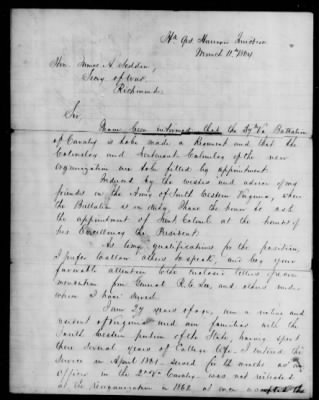 Hd Qrs Hanover Junction
March 11th 1864
Hon. James A. Seddon,
Secy of War,
Richmond.
Sir,
Have been informed that the 37th Va Battalion
of Cavalry is to be made a Regiment and that the
Colonelcy and Lieutenant Colonelcy of the new
organization are to be filled by appointment.
Induced by the wishes and advice of my
friends in the Army of South Western Virginia, where
the Battalion is on duty, I have the honor to ask
the appointment of Lieut Colonel at the hands of
his Excellency the President.
As to my qualifications for the position,
I prefer to allow others to speak, and beg your
favorable attention to the enclosed letters of recom-
mendation from General R. E. Lee, and others under
whom I have served.
I am 27 years of age, am a native and
resident of Virginia and am familiar with the
South Western portion of the State, having spent
there several years of College life. I entered the
Service in April 1861, served for 12 months as an
officer in the 2nd Va Cavalry, was not reelected
at the reorganization in 1862, at once accepted the